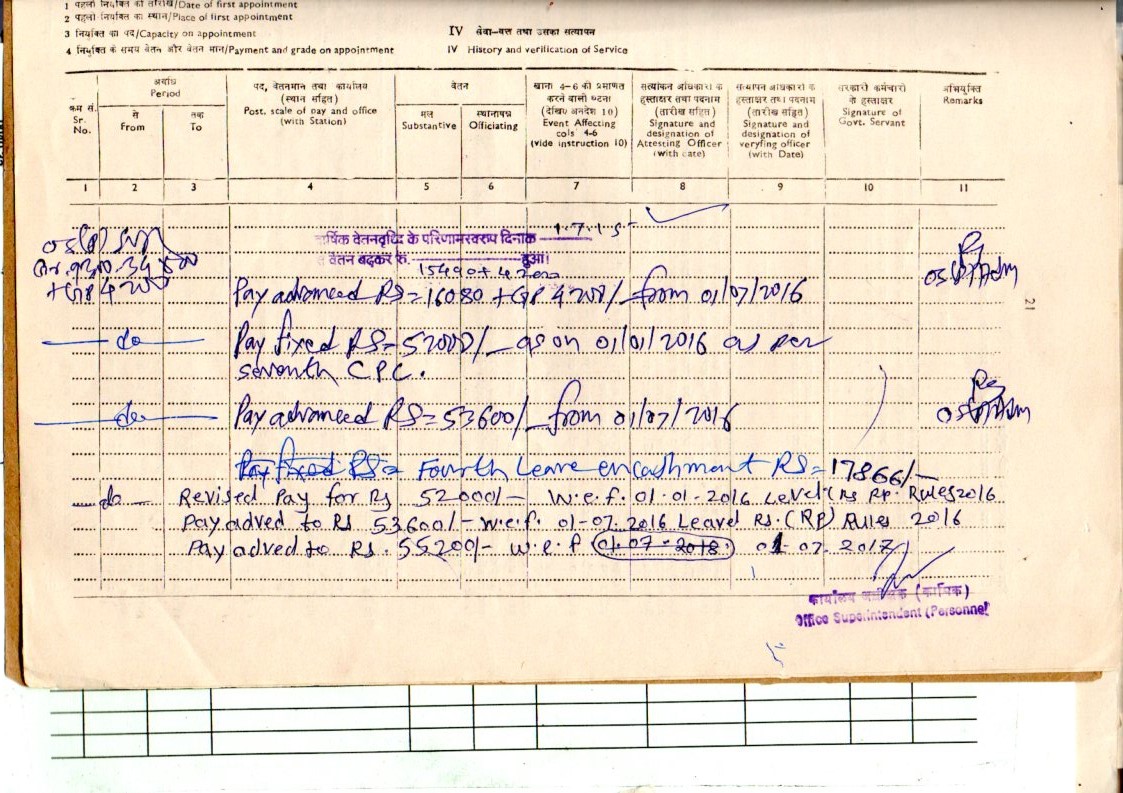 1 पहली नियुक्ति की तारीख/Date of first appointment
2 पहली नियुक्ति का स्थान/Place of first appointment
3 नियुक्ति का पद/Capacity on appointment
IV सेवा-वृत्त तथा उसका सत्यापन
4 नियुक्ति के समय वेतन और वेतन मान/Payment and grade on appointment
IV History and verification of Service
क्रम सं. Sr. No.
अवधि Period
से From
तक To
पद, वेतनमान तथा कार्यालय (स्थान सहित) Post, scale of pay and office (with Station)
वेतन
मूल Substantive
स्थानापन्न Officiating
खाना 4-6 को प्रभावित करने वाली घटना (देखिए अनुदेश 10) Event Affecting cols 4-6 (vide instruction 10)
सत्यांकन अधिकारी के हस्ताक्षर तथा पदनाम (तारीख सहित) Signature and designation of Attesting Officer (with date)
सत्यापन अधिकारी के हस्ताक्षर तथा पदनाम (तारीख सहित) Signature and designation of veryfing officer (with Date)
सरकारी कर्मचारी के हस्ताक्षर Signature of Govt. Servant
अभियुक्ति Remarks
1 2 3 4 5 6 7 8 9 10 11
वार्षिक वेतनवृद्धि के परिणामस्वरूप दिनांक 1.7.15
वेतन बढ़कर रु. 15490+4200 हुआ।
+GP 4200
Pay advanced RS=16080 +GP 4200/- from 01/07/2016
do Pay fixed RS=52000/- as on 01/01/2016 as per
seventh C.P.C.
do Pay advanced RS=53600/- from 01/07/2016
Pay fixed RS= Fourth Leave encashment RS=17866/-
do Revised Pay for Rs 52000/- w.e.f. 01.01.2016 Level RP. Rules 2016
Pay advced to Rs 53600/- w.e.f. 01-07.2016 Leavel Rs. (RP) Rules 2016
Pay advced to Rs. 55200/- w.e.f 01.07.2018 01.07.2017
कार्यालय अधीक्षक (कार्मिक)
Office Superintendent (Personnel
21